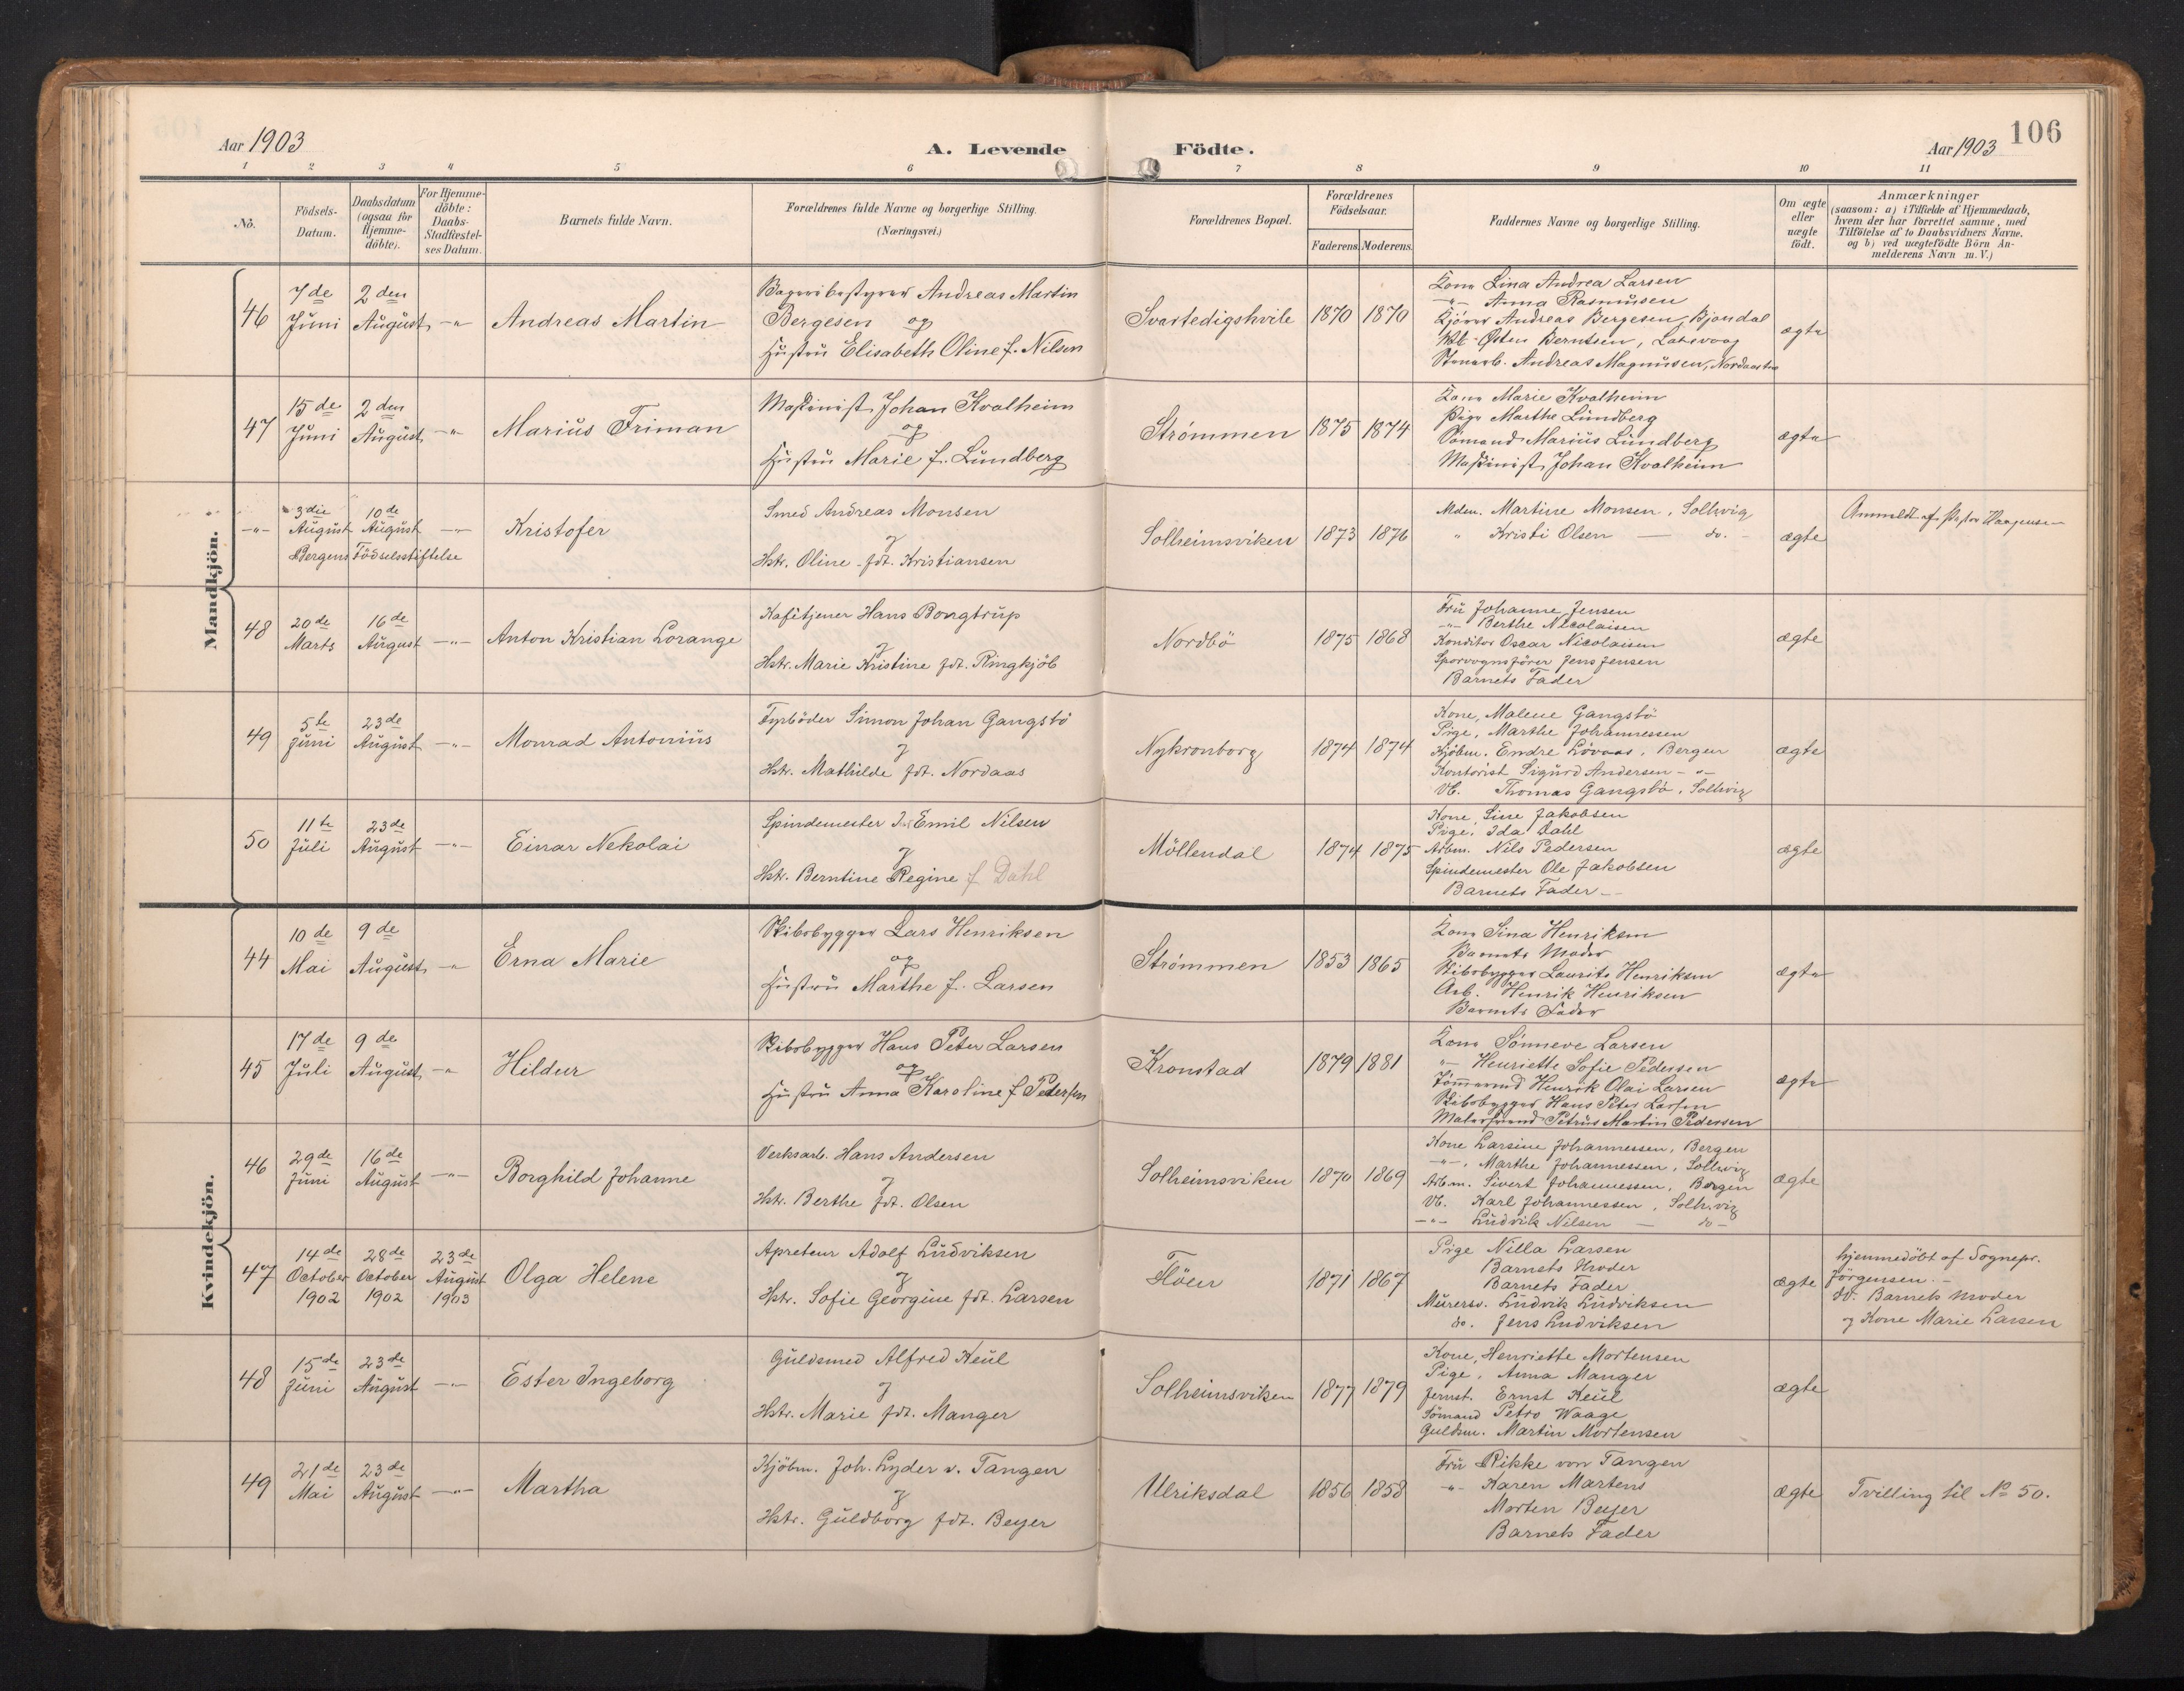 106
Aar 1903
A. Levende Födte.
Aar 1903
1 2 3 4 5 6 7 8 9 10 11
No.
Födsels-Datum.
Daabsdatum (ogsaa for Hjemmedöbte).
For Hjemmedöbte: Daabs-Stadfæstelses Datum.
Barnets fulde Navn.
Forældrenes fulde Navne og borgerlige Stilling.
(Næringsvei.)
Forældrenes Bopæl.
Forældrenes Födselsaar.
Faderens. Moderens.
Faddernes Navne og borgerlige Stilling.
Om ægte eller uægte födt.
Anmærkninger
(saasom: a) i Tilfælde af Hjemmedaab,
hvem der har forrettet samme, med
Tilföielse af to Daabsvidners Navne.
og b) ved uægtefödte Börn An-
melderens Navn m. V.)
Mandkjön.
46
7de Juni
2den August
-"-
Andreas Martin
Bageribestyrer Andreas Martin
Bergesen og
Hustru Elisabeth Oline f. Nilsen
Svartedigshvile
1870 1870
Kone Lina Andrea Larsen
-"- Anna Rasmusen
Andreas Bergesen, Bjøndal
Østen Berntsen, Laksevaag
Andreas Magnusen,
ægte
47
15de Juni
2den August
-"-
Marius Friman
Maskinist Johan Kvalheim
og
Hustru Marie f. Lundberg
Strømmen
1875 1874
Kone Marie Kvalheim
Pige Marthe Lundberg
Sømand Marius Lundberg
Maskinist Johan Kvalheim
ægte
-"-
3die August
10de August
-"-
Bergens Födselsstiftelse
Kristofer
Smed Andreas Monsen
&
Hstr. Oline fdt. Kristiansen
Solheimsviken
1873 1876
Mdm. Martine Monsen, Solhvig
" Kristi Olsen — do. -
ægte
Anmeldt af Pastor Haagensen
48
20de Marts
16de August
-"-
Anton Kristian Lorange
Kafétjener Hans Bongtrup
&
Hstr. Marie Kristine fdt. Ringkjöb
Nordbö
1875 1868
Fru Johanne Jensen
-"- Berthe Nicolaisen
Konditor Oscar Nicolaisen
Sporvognsförer Jens Jensen
Barnets Fader
ægte
49
5te Juni
23de August
-"-
Monrad Antonius
Fyrböder Simon Johan Gangstö
&
Hstr. Mathilde fdt. Nordaas
Nykronborg
1874 1874
Kone, Malene Gangstö
Pige, Marthe Johannessen
Kjöbm. Endre Lövaas, Bergen
Kontorist Sigurd Andersen -"-
Vb. Thomas Gangstö, Solhvig
ægte
50
11te Juli
23de August
-"-
Einar Nekolai
Spindemester J. Emil Nilsen
&
Hstr. Berntine Regine f Dahl
Möllendal
1874 1875
Kone, Sine Jakobsen
Pige, Ida Dahl
Arbm. Nils Pedersen
Spindemester Ole Jakobsen
Barnets Fader -
ægte
Kvindekjön.
44
10de Mai
9de August
-"-
Erna Marie
Skibsbygger Lars Henriksen
og
Hustru Marthe f. Larsen
Strømmen
1853 1865
Kone Sina Henriksen
Barnets Moder
Skibsbygger Laurits Henriksen
Arb. Henrik Henriksen
Barnets Fader
ægte
45
17de Juli
9de August
-"-
Hildur
Skibsbygger Hans Peter Larsen
og
Hustru Anna Karoline f Pedersen
Kronstad
1879 1881
Kone Sønneve Larsen
-"- Henriette Sofie Pedersen
Tømmermd Henrik Olai Larsen
Skibsbygger Hans Peter Larsen
Malersvend Petrus Martin Pedersen
ægte
46
29de Juni
16de August
-"-
Borghild Johanne
Verksarb. Hans Andersen
&
Hstr. Berthe fdt. Olsen
Solheimsviken
1870 1869
Kone Larsine Johannessen, Bergen
-"-, Marthe Johannessen, Solhvig
Arbm. Sivert Johannessen, Bergen
Vb. Karl Johannessen, Solhvig
-"- Ludvik Nilsen — do -
ægte
47
14de October 1902
28de October 1902
23de August 1903
Olga Helene
Apreteur Adolf Ludviksen
&
Hstr. Sofie Georgine fdt. Larsen
Flöen
1871 1867
Pige Nilla Larsen
Barnets Moder
Barnets Fader
Murersv. Ludvik Ludviksen
do. Jens Ludviksen
ægte
hjemmedöbt af Sognepr.
Jörgensen. -
Barnets Moder
og Kone Marie Larsen
48
15de Juni
23de August
-"-
Ester Ingeborg
Guldsmed Alfred Keul
&
Hstr. Marie fdt. Manger
Solheimsviken
1877 1879
Kone, Henriette Mortensen
Pige, Anna Manger
Jernst. Ernst Keul
Sömand Petro Waage
Guldsm. Martin Mortensen
ægte
49
21de Mai
23de August
-"-
Martha
Kjöbm. Joh. Lyder v. Tangen
&
Hstr. Guldborg fdt. Beyer
Ulriksdal
1856 1858
Fru Rikke von Tangen
-"- Karen Martens
Morten Beyer
Barnets Fader
ægte
Tvilling til No 50.